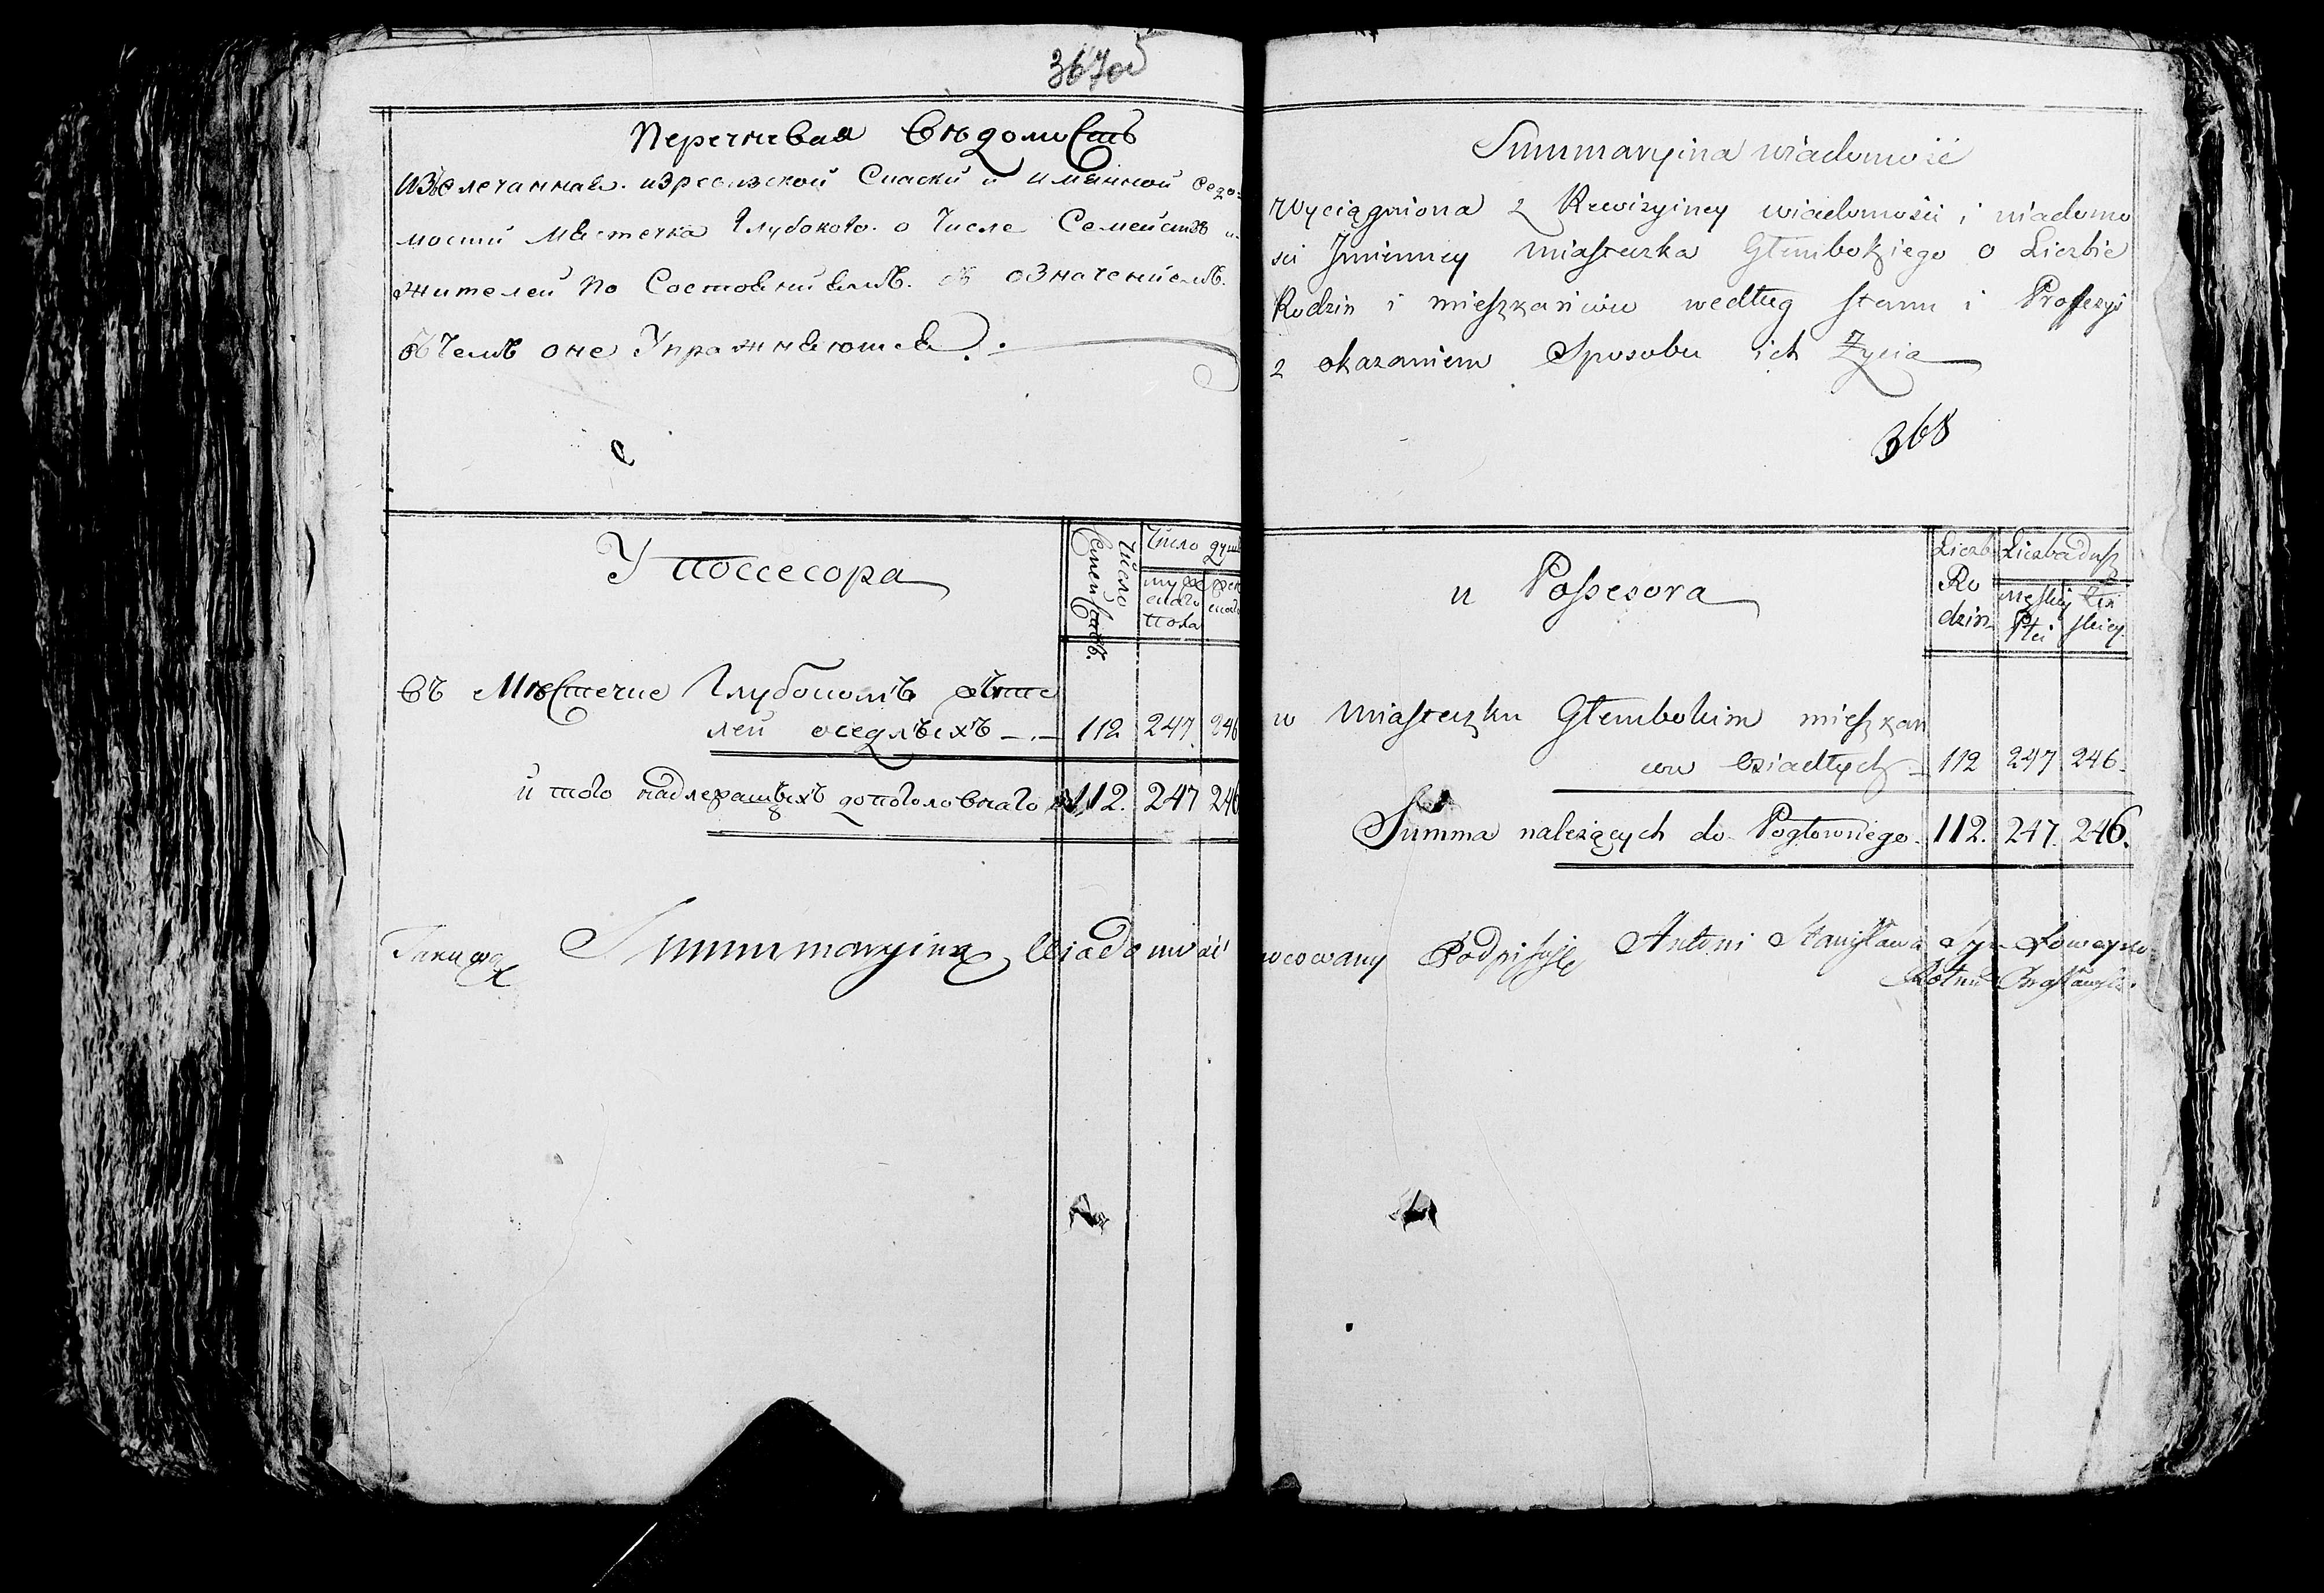 367об
Перечневая вѣдомость
извлеченная изревизской Сказки и имянной ведо-
мости Мѣстечка Глубокого о Числе Семействъ и
жителей по Состояниямъ съ означениемъ
въ Чемъ оне Упражняются
У поссесора
Число Семействъ.
Число душъ
мужескаго пола
женскаго
въ Мѣстечке Глубокомъ жите
лей оседлыхъ 112 247 246
и того надлежащихъ до поголовнаго 112. 247 246
Summaryina Wiadomość
Summaryina wiadomość
Wyciągniona z Rewizyiney wiadomości i wiadomo
ści Jmienney Miasteczka Głembokiego o Liczbie
Rodzin i mieszkańców według stanu i Professyi
z okazaniem Sposobu ich Życia
368
u Possesora
Liczba Ro dzin
Liczba dusz
męskiey Płci
żeń skiey
w Miasteczku Głembokim mieszkań
cow Osiadłych 112 247 246.
Summa należących do Pogłownego 112. 247. 246.
Podpisuję Antoni Stanisława Syn